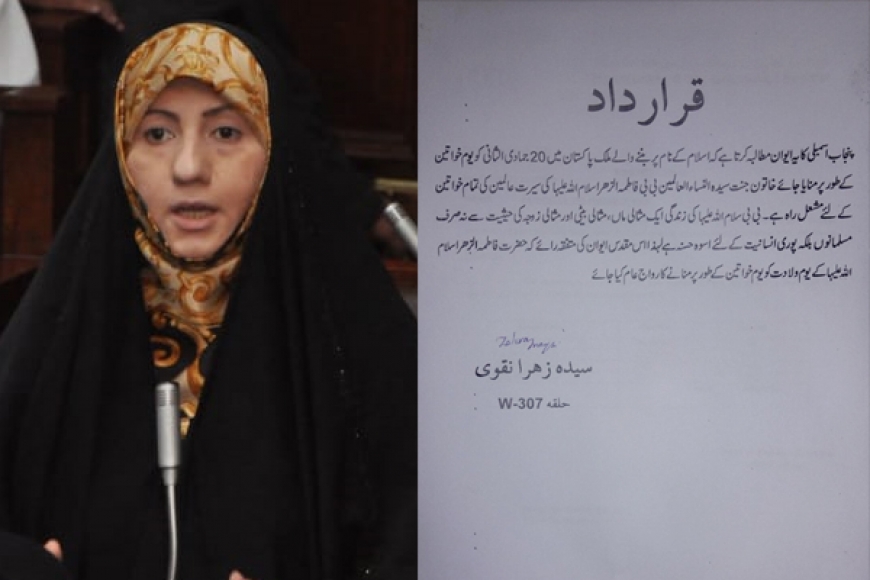 قرارداد
پنجاب اسمبلی کا یہ ایوان مطالبہ کرتا ہے کہ اسلام کے نام پر بننے والے ملک پاکستان میں 20 جمادی الثانی کو یوم خواتین
کے طور پر منایا جائے خاتون جنت سیدہ النساء العالمین بی بی فاطمہ الزھرا سلام اللہ علیہا کی سیرت عالمین کی تمام خواتین
کے لئے مشعل راہ ہے۔ بی بی سلام اللہ علیہا کی زندگی ایک مثالی ماں، مثالی بیٹی اور مثالی زوجہ کی حیثیت سے نہ صرف
مسلمانوں بلکہ پوری انسانیت کے لئے اسوہ حسنہ ہے لہذا اس مقدس ایوان کی متفقہ رائے کہ حضرت فاطمہ الزھرا سلام
اللہ علیہا کے یوم ولادت کو یوم خواتین کے طور پر منانے کا رواج عام کیا جائے
Zehra Naqvi
سیدہ زھرا نقوی
حلقہ W-307